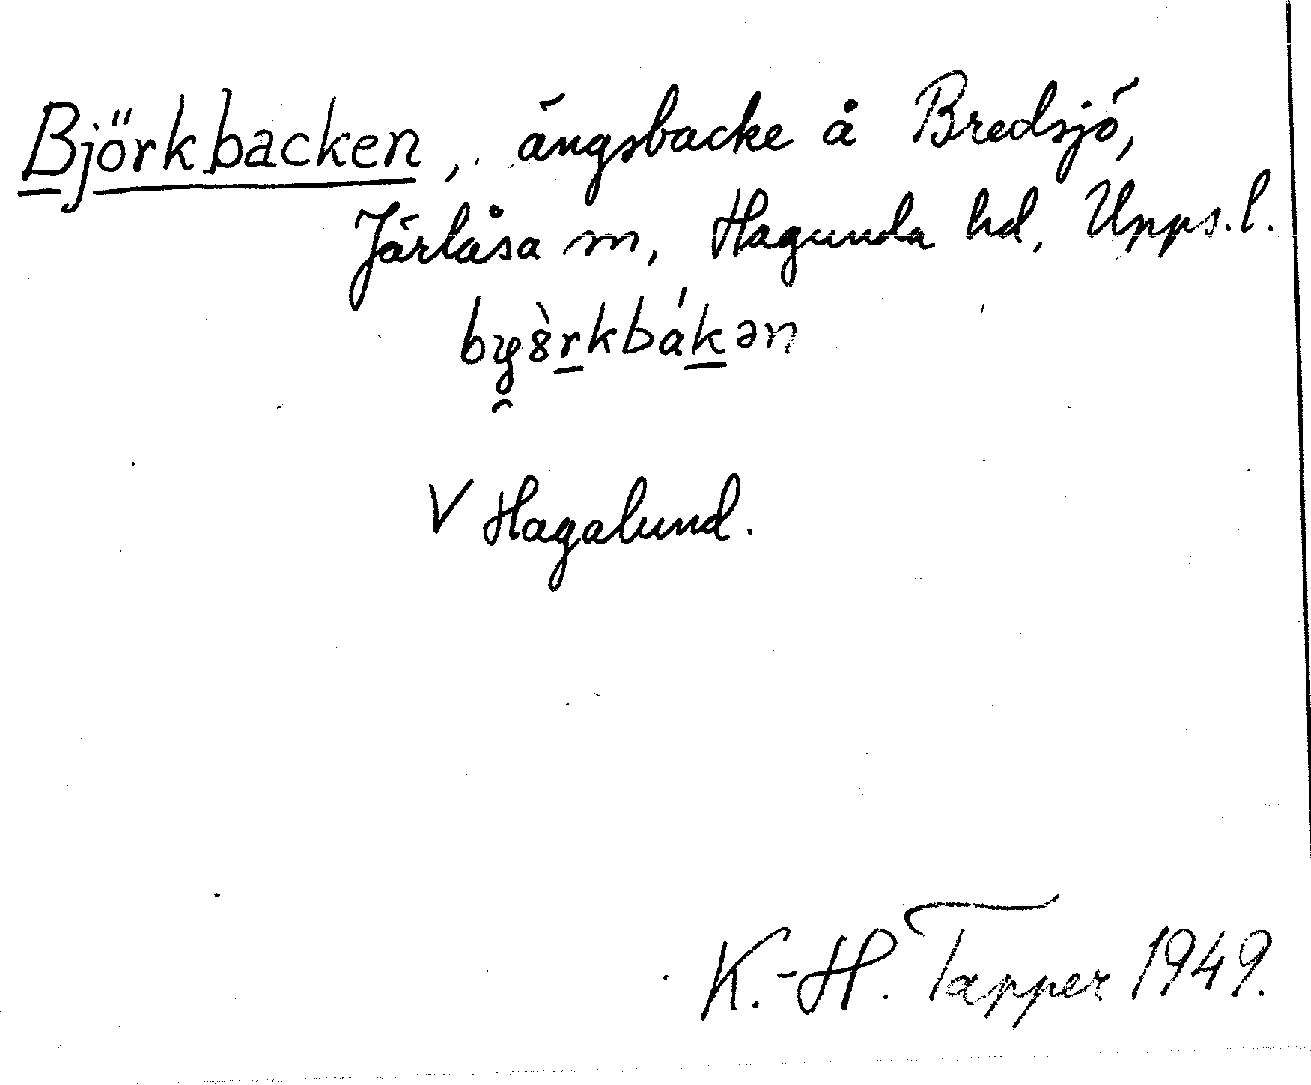 Björkbacken, ängsbacke å Bredsjö,
Järlåsa sn, Hagunda hd, Upps. l.
V Hagalund.
K.-H. Tapper 1949.